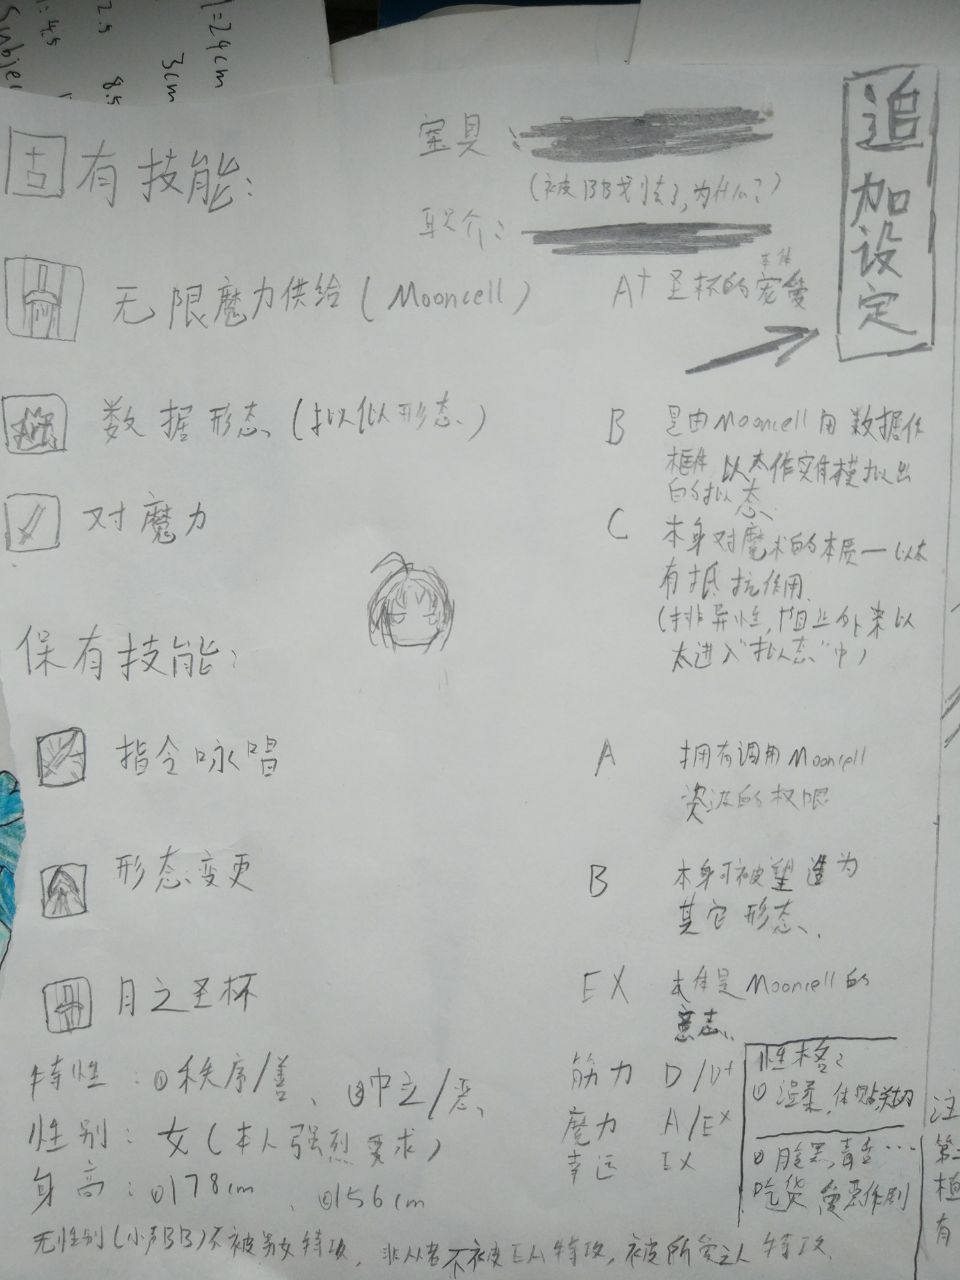 l=24cm
3cm
2.5
8.5
1:45
Subjec
追加设定
宝具:
(被BB划去了,为什么?)
职介:
固有技能:
无限魔力供给(Mooncell) A+ 圣杯的宠爱
本体
数据形态(拟似形态) B 是由Mooncell用数据作
框架 以太作实体模拟出
的拟态
对魔力 C 本身对魔术的本质一以太
有抵抗作用.
(排异性,阻止外来以
太进入"拟态"中)
保有技能:
指令咏唱 A 拥有调用Mooncell
资源的权限
形态变更 B 本身可被塑造为
其它形态.
月之圣杯 EX 本体是Mooncell的
意志.
特性:①秩序/善、②中立/恶
性别:女(本人强烈要求)
身高:①178cm、②156cm
筋力 D/D+
魔力 A/EX
幸运 EX
性格:
①温柔,体贴,
②腹黑,毒舌…
吃货 爱恶作剧
注
第二
植
有
无性别(小声BB)不被男女特攻,非从者不被EA特攻,被所爱之人特攻.